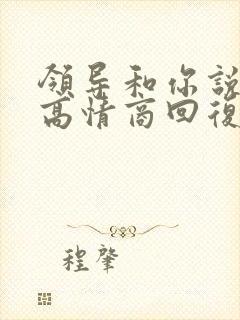 領导和你説
高情商回復
程肇